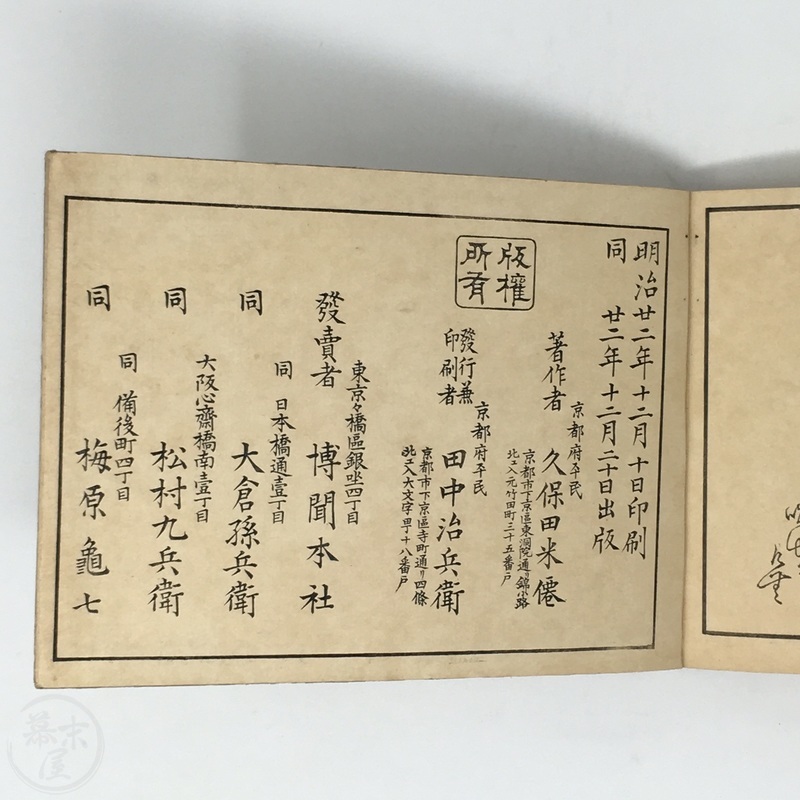 明治廿二年十二月十日印刷
同 廿二年十二月二十日出版
版權
所有
京都府平民
著作者 久保田米僊
京都市下京區東洞院通リ錦小路
北エ入元竹田町三十五番戸
京都府平民
發行兼
印刷者 田中治兵衛
京都市下京區寺町通リ四條
北エ入大文字町十八番戸
東京々橋區銀坐四丁目
發賣者 博聞本社
同 日本橋通壹丁目
同 大倉孫兵衛
大阪心齋橋南壹丁目
同 松村九兵衛
同 備後町四丁目
同 梅原龜七
幕末
屋